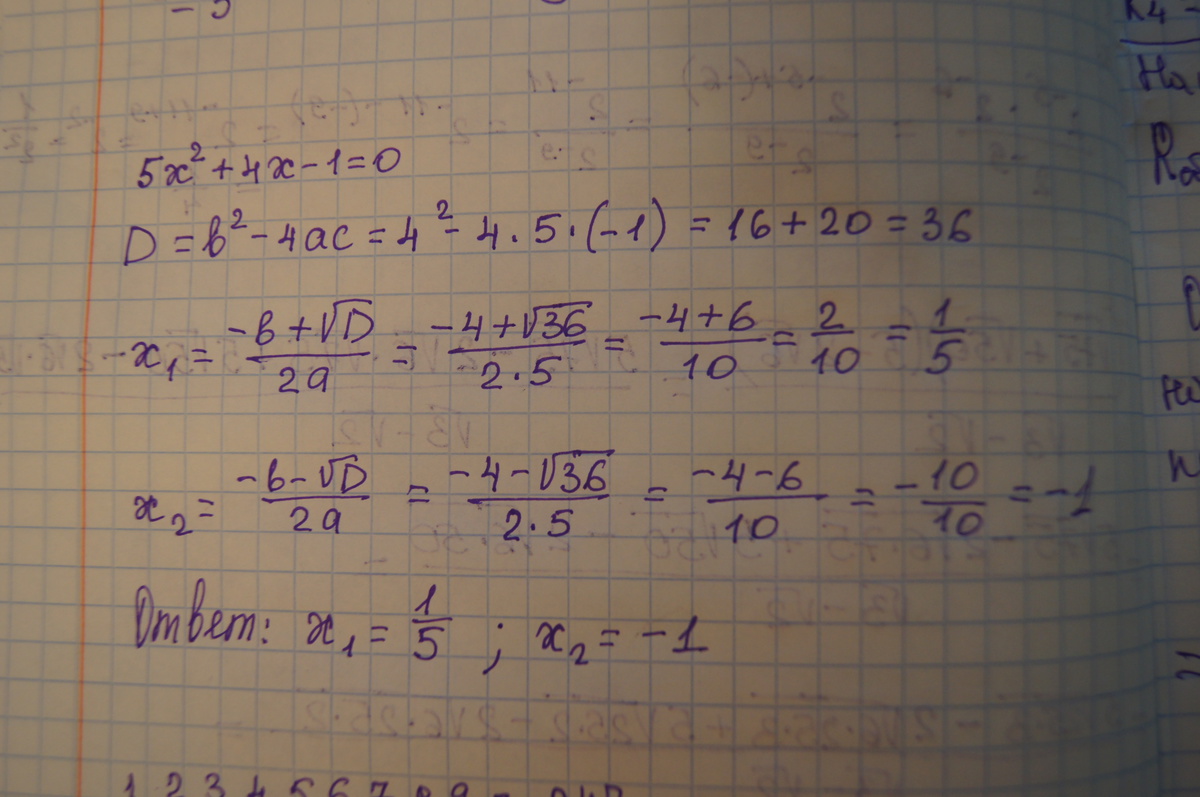 - 5
5x² + 4x - 1 = 0
D = b² - 4ac = 4² - 4 · 5 · (-1) = 16 + 20 = 36
x₁ = (-b + √D)/(2a) = (-4 + √36)/(2 · 5) = (-4 + 6)/10 = 2/10 = 1/5
x₂ = (-b - √D)/(2a) = (-4 - √36)/(2 · 5) = (-4 - 6)/10 = -10/10 = -1
Ответ: x₁ = 1/5 ; x₂ = -1